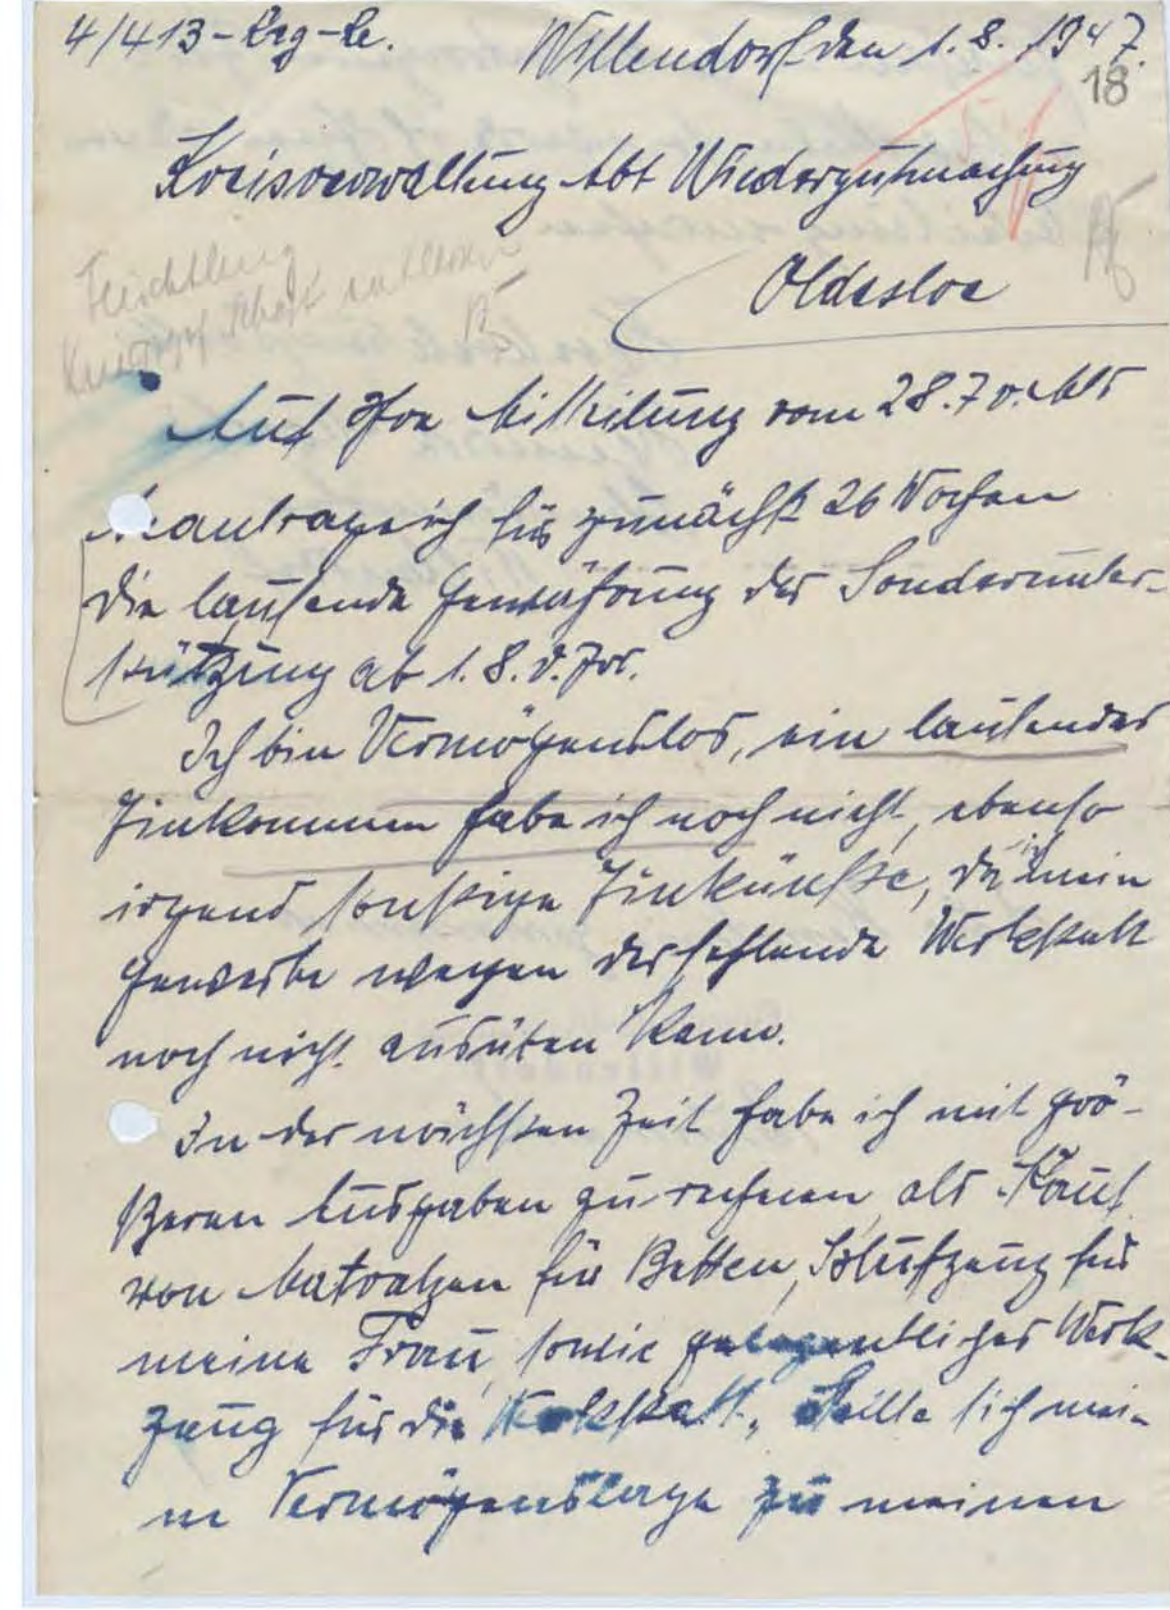 4/413-Erg-Le.
Willendorf den 1.8.1947.
18
Kreisverwaltung Abt Wiedergutmachung
Oldesloe
Flüchtling
Auf Ihre Mitteilung vom 28.7 v. Mts
beantrage ich für zunächst 26 Wochen
die laufende Gewährung der Sonderunter-
stützung ab 1.8.d.Jrs.
Ich bin Vermögenslos, ein laufendes
Einkommen habe ich noch nicht, ebenso
irgend sonstige Einkünfte, da ich mein
Gewerbe wegen der fehlende Werkstatt
noch nicht ausüben kann.
In der nächsten Zeit habe ich mit grö-
ßeren Ausgaben zu rechnen, als Kauf
von Matratzen für Betten, für
meine Frau, sowie gelegentliches Werk-
zeug für die Werkstatt. Sollte sich mei-
ne Vermögenslage zu meinen